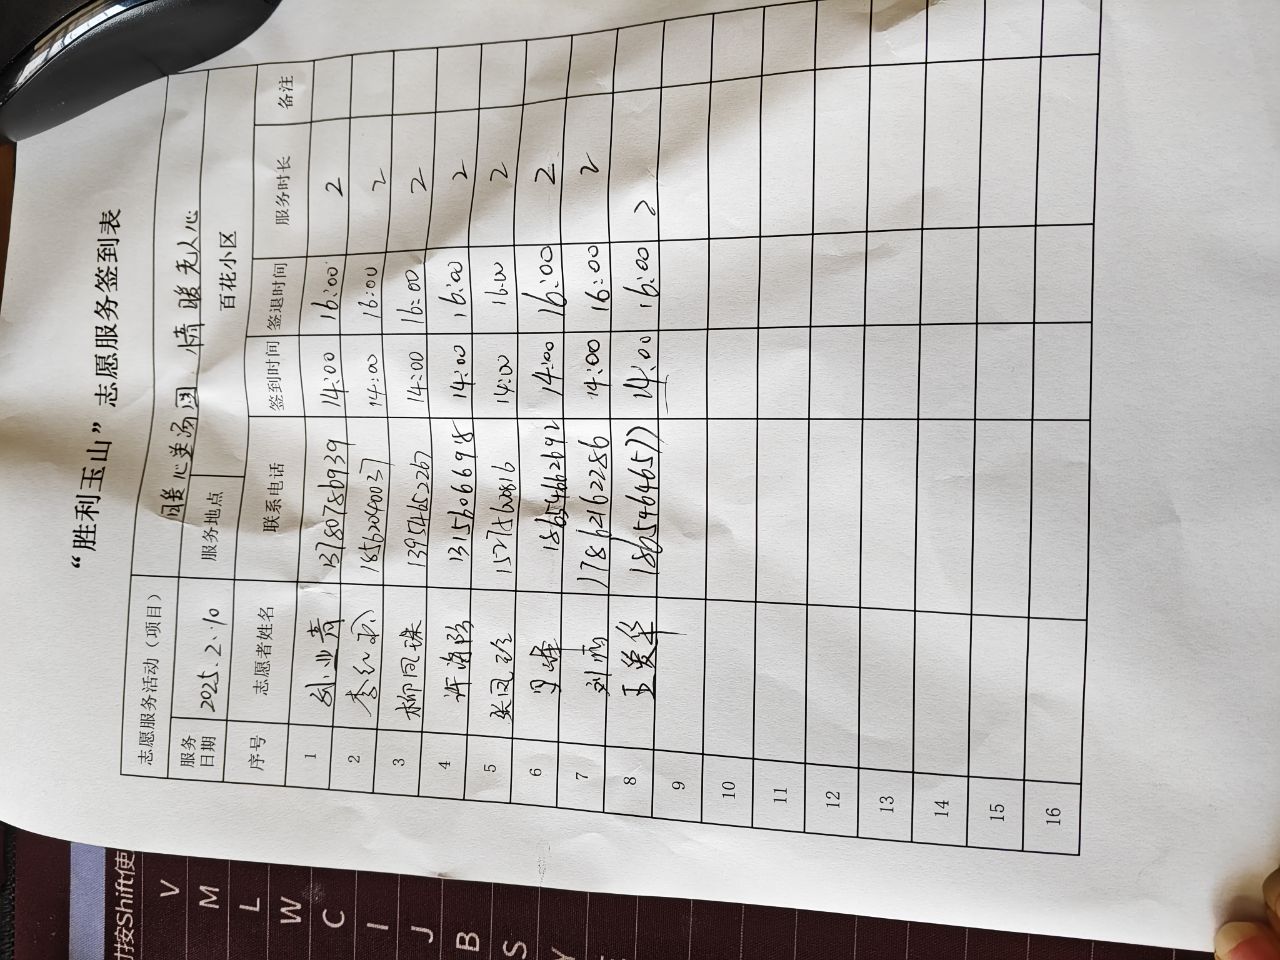 “胜利玉山”志愿服务签到表
志愿服务活动（项目） 暖心送汤圆 情暖老人心
服务日期 2025.2.10 服务地点 百花小区
序号 志愿者姓名 联系电话 签到时间 签退时间 服务时长 备注
1 13780786939 14:00 16:00 2
2 18562040037 14:00 16:00 2
3 柳凤珠 13954652267 14:00 16:00 2
4 许海 13156066948 14:00 16:00 2
5 张凤珍 15275620816 14:00 16:00 2
6 18654662692 14:00 16:00 2
7 17862162286 14:00 16:00 2
8 王爱华 18654646577 14:00 16:00 2
9
10
11
12
13
14
15
16
按Shift使
V
M
L
W
C
I
J
B
S